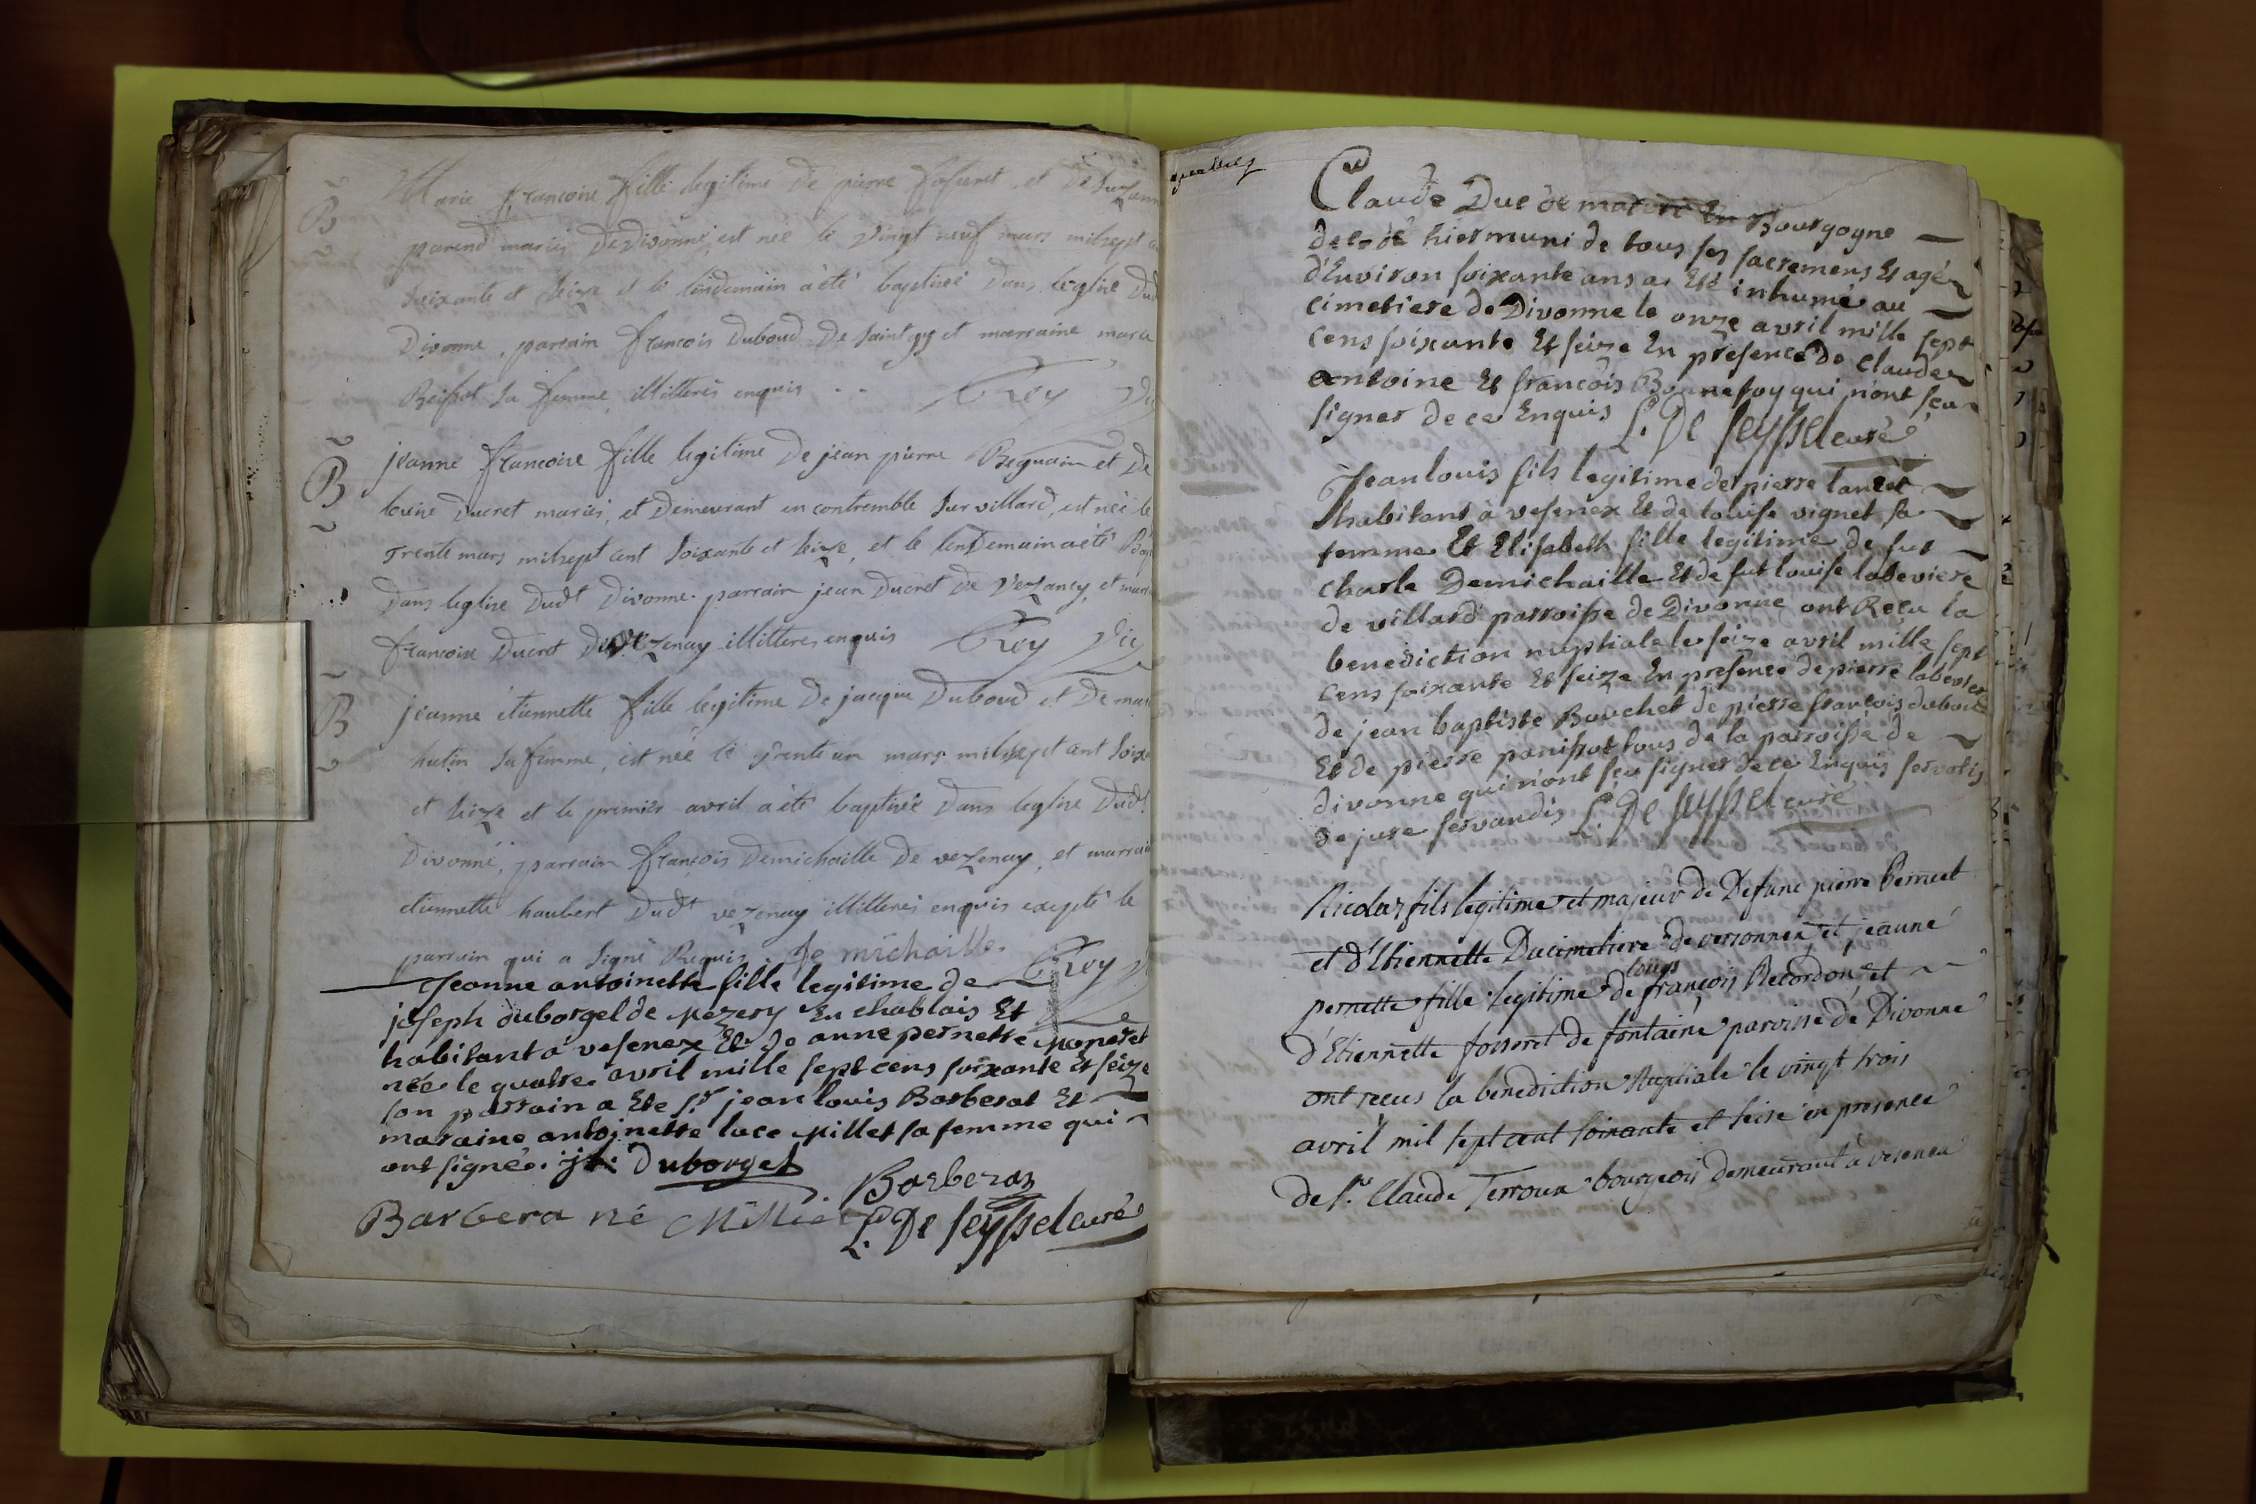 B
Marie françoise fille legitime de pierre fosseret et de
parend mariés de Divonne est née le vingt neuf mars milsept
soixante et seize et le lendemain a été baptisée dans leglise dud
Divonne, parrain francois Duboud de Saint gy et marraine marie
sa femme illitterés enquis Crey
B
jeanne francoise fille legitime de jean pierre Reguain et de
Ducret mariés, et Demeurant en contremble Sur villard, est née le
trente mars milsept cent soixante et seize, et le lendemain a été
dans leglise dudt Divonne. parrain jean Ducret de Vezancy, et
francoise Ducret illitteres enquis Crey Vic
B
jeanne étiennette fille legitime de jacque Duboud et De
hutin sa femme, est née le trente un mars milsept cent
et seize et le premier avril a été baptisée dans leglise dudt
Divonne, parrain françois Demichaille de vezenay, et
etiennette haubert dudt vezenay illitterés enquis excepté le
parrain qui a signé Requis. de michaille. Crey
Jeanne antoinette fille legitime de
joseph duborgel de mezery En chablais Et
habitant a vesenex Et de anne pernette moneret
née le quatre avril mille sept cens soixante Et seize
son parrain a Ete sr jean louis Barberat Et
maraine antoinette luce millet sa femme qui
ont signés. Duborgel
Barberaz
Barbera né Milliet L. De seyssel curé
Claude Duc de en Bourgogne
decedé hier muni de tous ses sacremens Et agé
d'Environ soixante ans a Eté inhumé au
cimetiere de Divonne le onze avril mille sept
cens soixante Et seize En présence de claude
antoine Et françois Bonnefoy qui n'ont sçu
signer de ce Enquis L. De seyssel curé
Jean louis fils legitime de pierre lancet
habitant à vesenex Et de louise vignet sa
femme Et Elisabeth fille legitime de fut
charle Demichaille Et de fut louise labeviere
de villard parroisse de Divonne ont Reçu la
benediction nuptiale le seize avril mille sept
cens soixante Et seize En présence de pierre labevier
de jean baptiste Bouchet de pierre françois duboud
Et de pierre panissot tous de la parroisse de
divonne qui n'ont sçu signer de ce Enquis servatis
de jure servandis L. De seyssel curé
Nicolas fils légitime et majeur de Defunc pierre Pernet
et d'Etiennette Ducimetiere de versonnex et jeanne
louis
pernette fille légitime de françois Recordon et
d'Etiennette fosseret de fontaine paroisse de Divonne
ont reçus la bénédiction Nuptiale le vingt trois
avril mil sept cent soixante et seize en presence
de Sr Claude Terroux bourgeois demeurant à vesenex